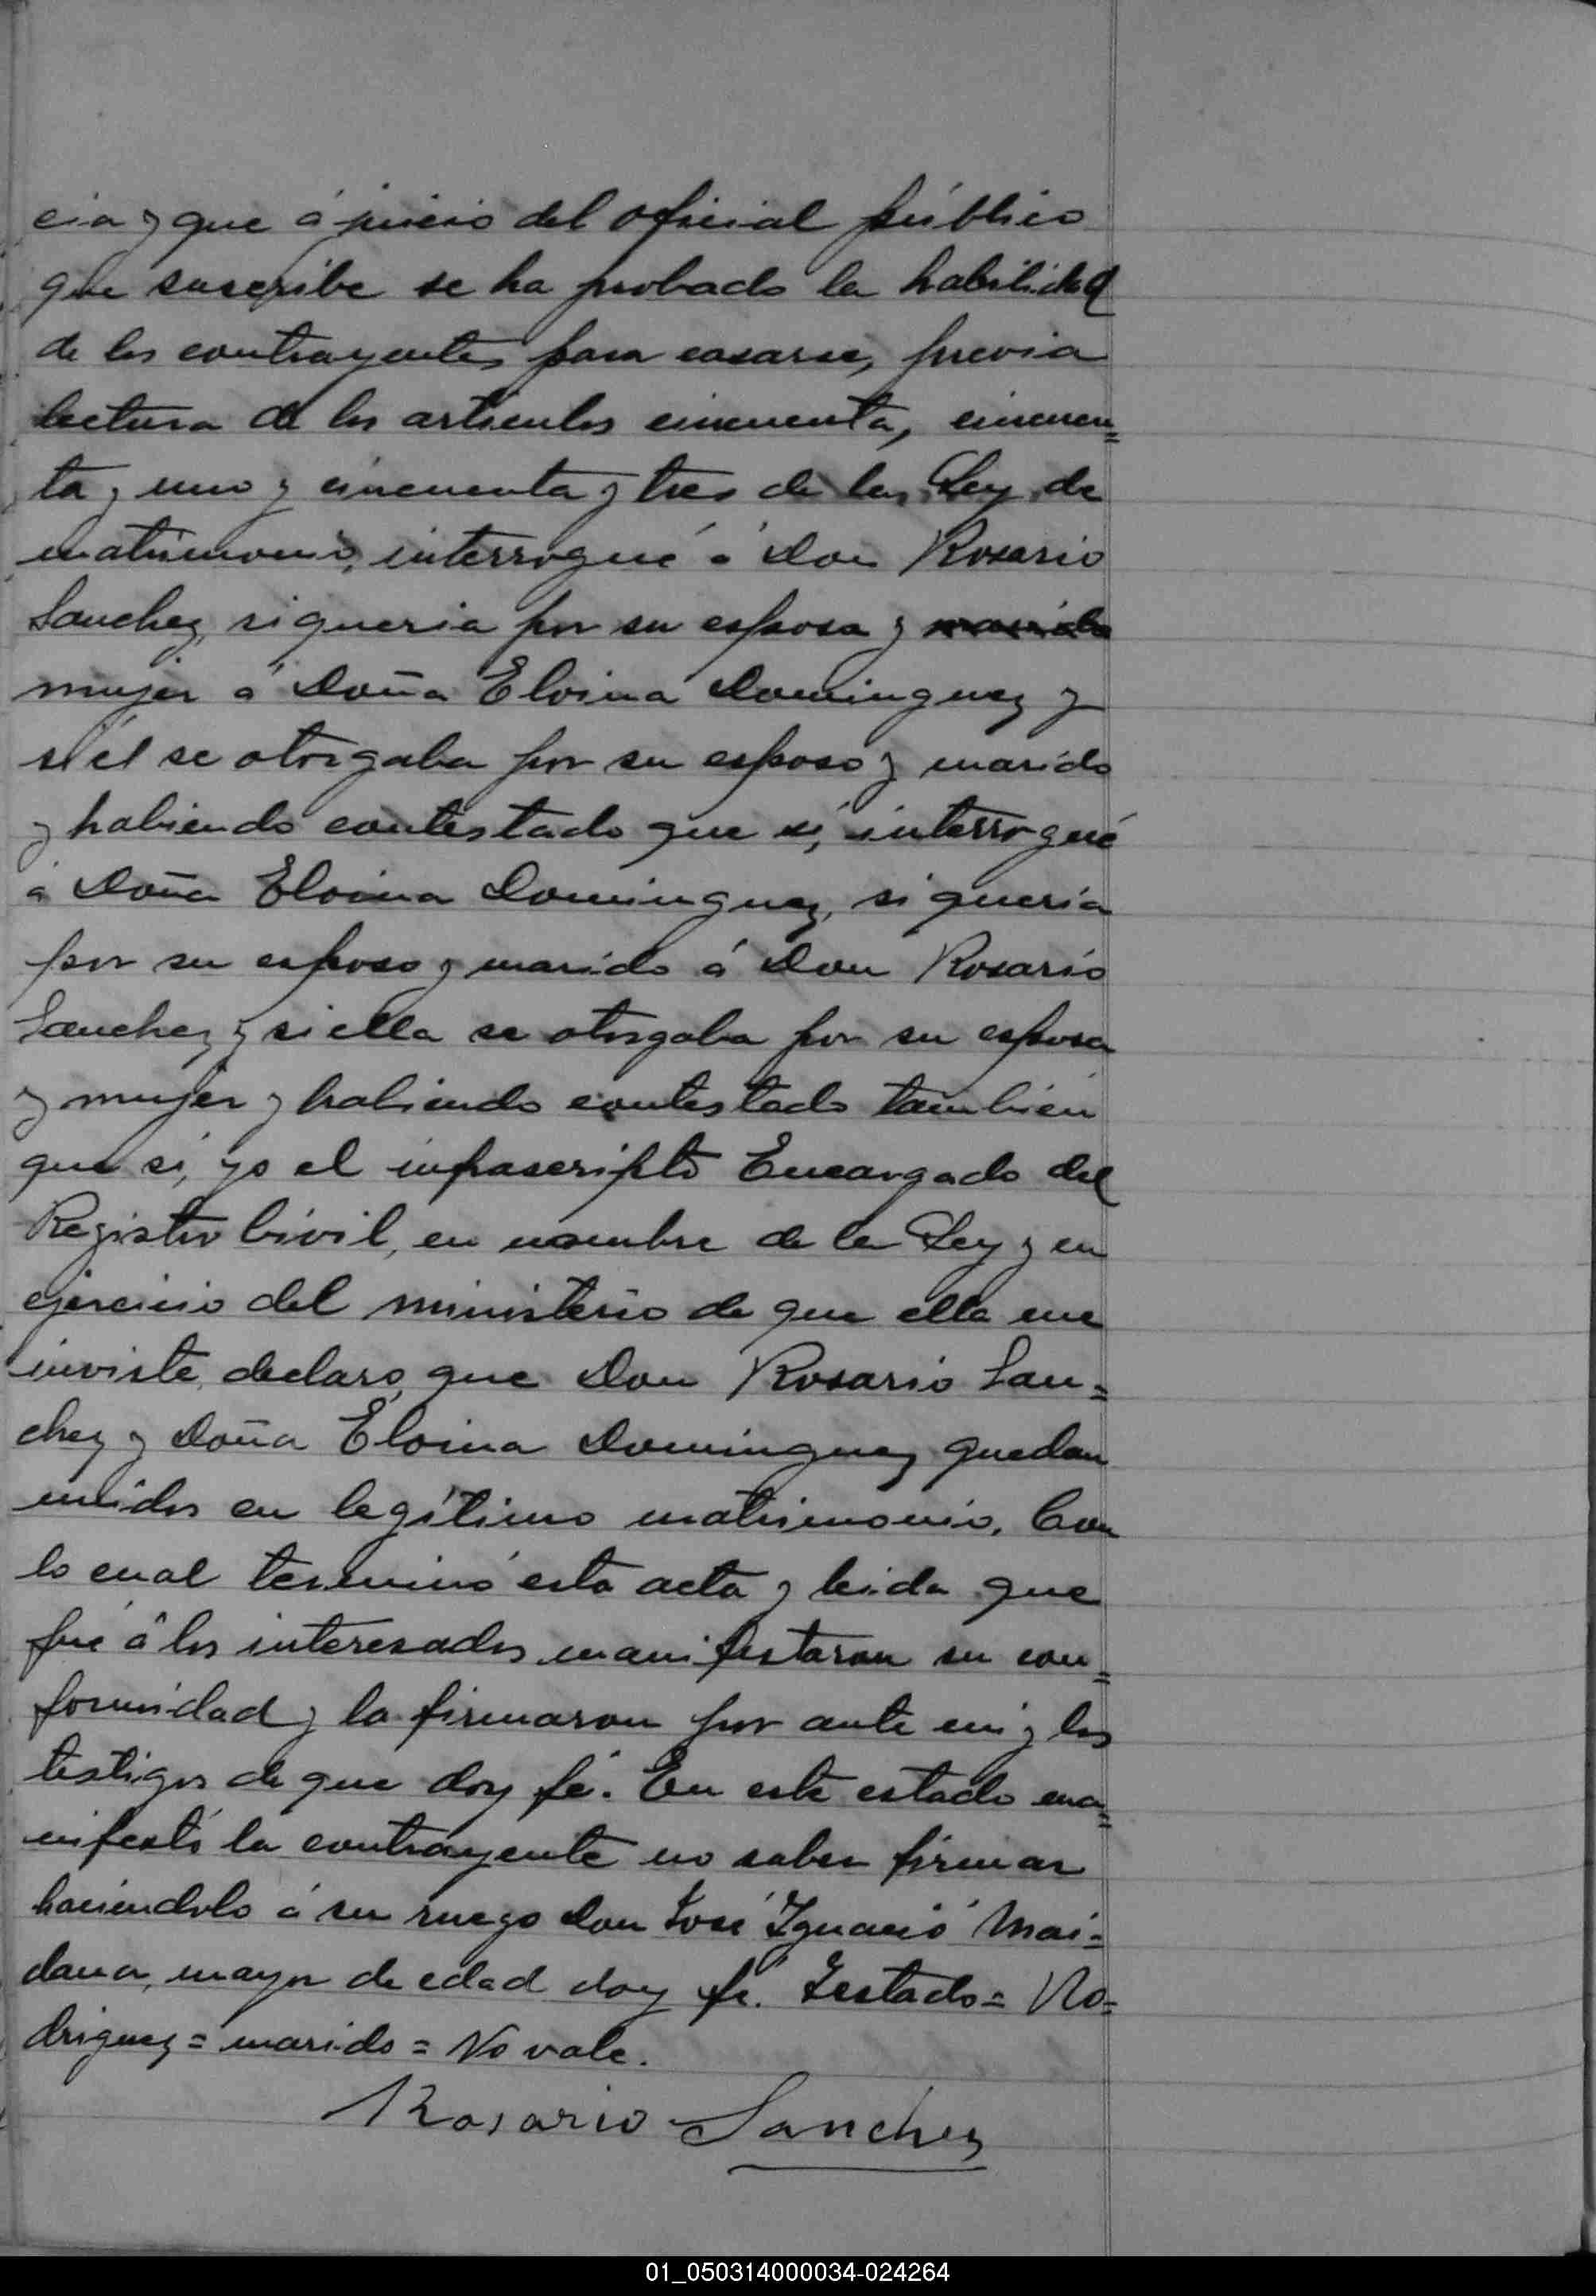 cia y que á juicio del oficial público
que suscribe se ha probado la habilidad
de los contrayentes para casarse, previa
lectura de los artículos cincuenta, cincuen=
ta y uno y cincuenta y tres de la Ley de
matrimonio, interrogué á Don Rosario
Sanchez, si queria por su esposa y marido
mujer á Doña Eloina Dominguez y
si él se otorgaba por su esposo y marido
y habiendo contestado que sí, interrogué
á Doña Eloina Dominguez, si quería
por su esposo y marido á Don Rosario
Sanchez y si ella se otorgaba por su esposa
y mujer y habiendo contestado también
que sí, yo el infrascripto Encargado del
Registro Civil, en nombre de la Ley y en
ejercicio del ministerio de que ella me
inviste, declaro, que Don Rosario San=
chez y Doña Eloina Dominguez quedan
unidos en legítimo matrimonio. Con
lo cual terminó esta acta y leida que
fué á los interesados manifestaron su con=
formidad y la firmaron por ante mi y los
testigos de que doy fé. En este estado ma=
nifestó la contrayente no saber firmar
haciéndolo á su ruego Don José Ignacio Mai=
dana, mayor de edad doy fé. Testado= Ro=
driguez = marido = No vale.
Rosario Sanchez
01_050314000034-024264